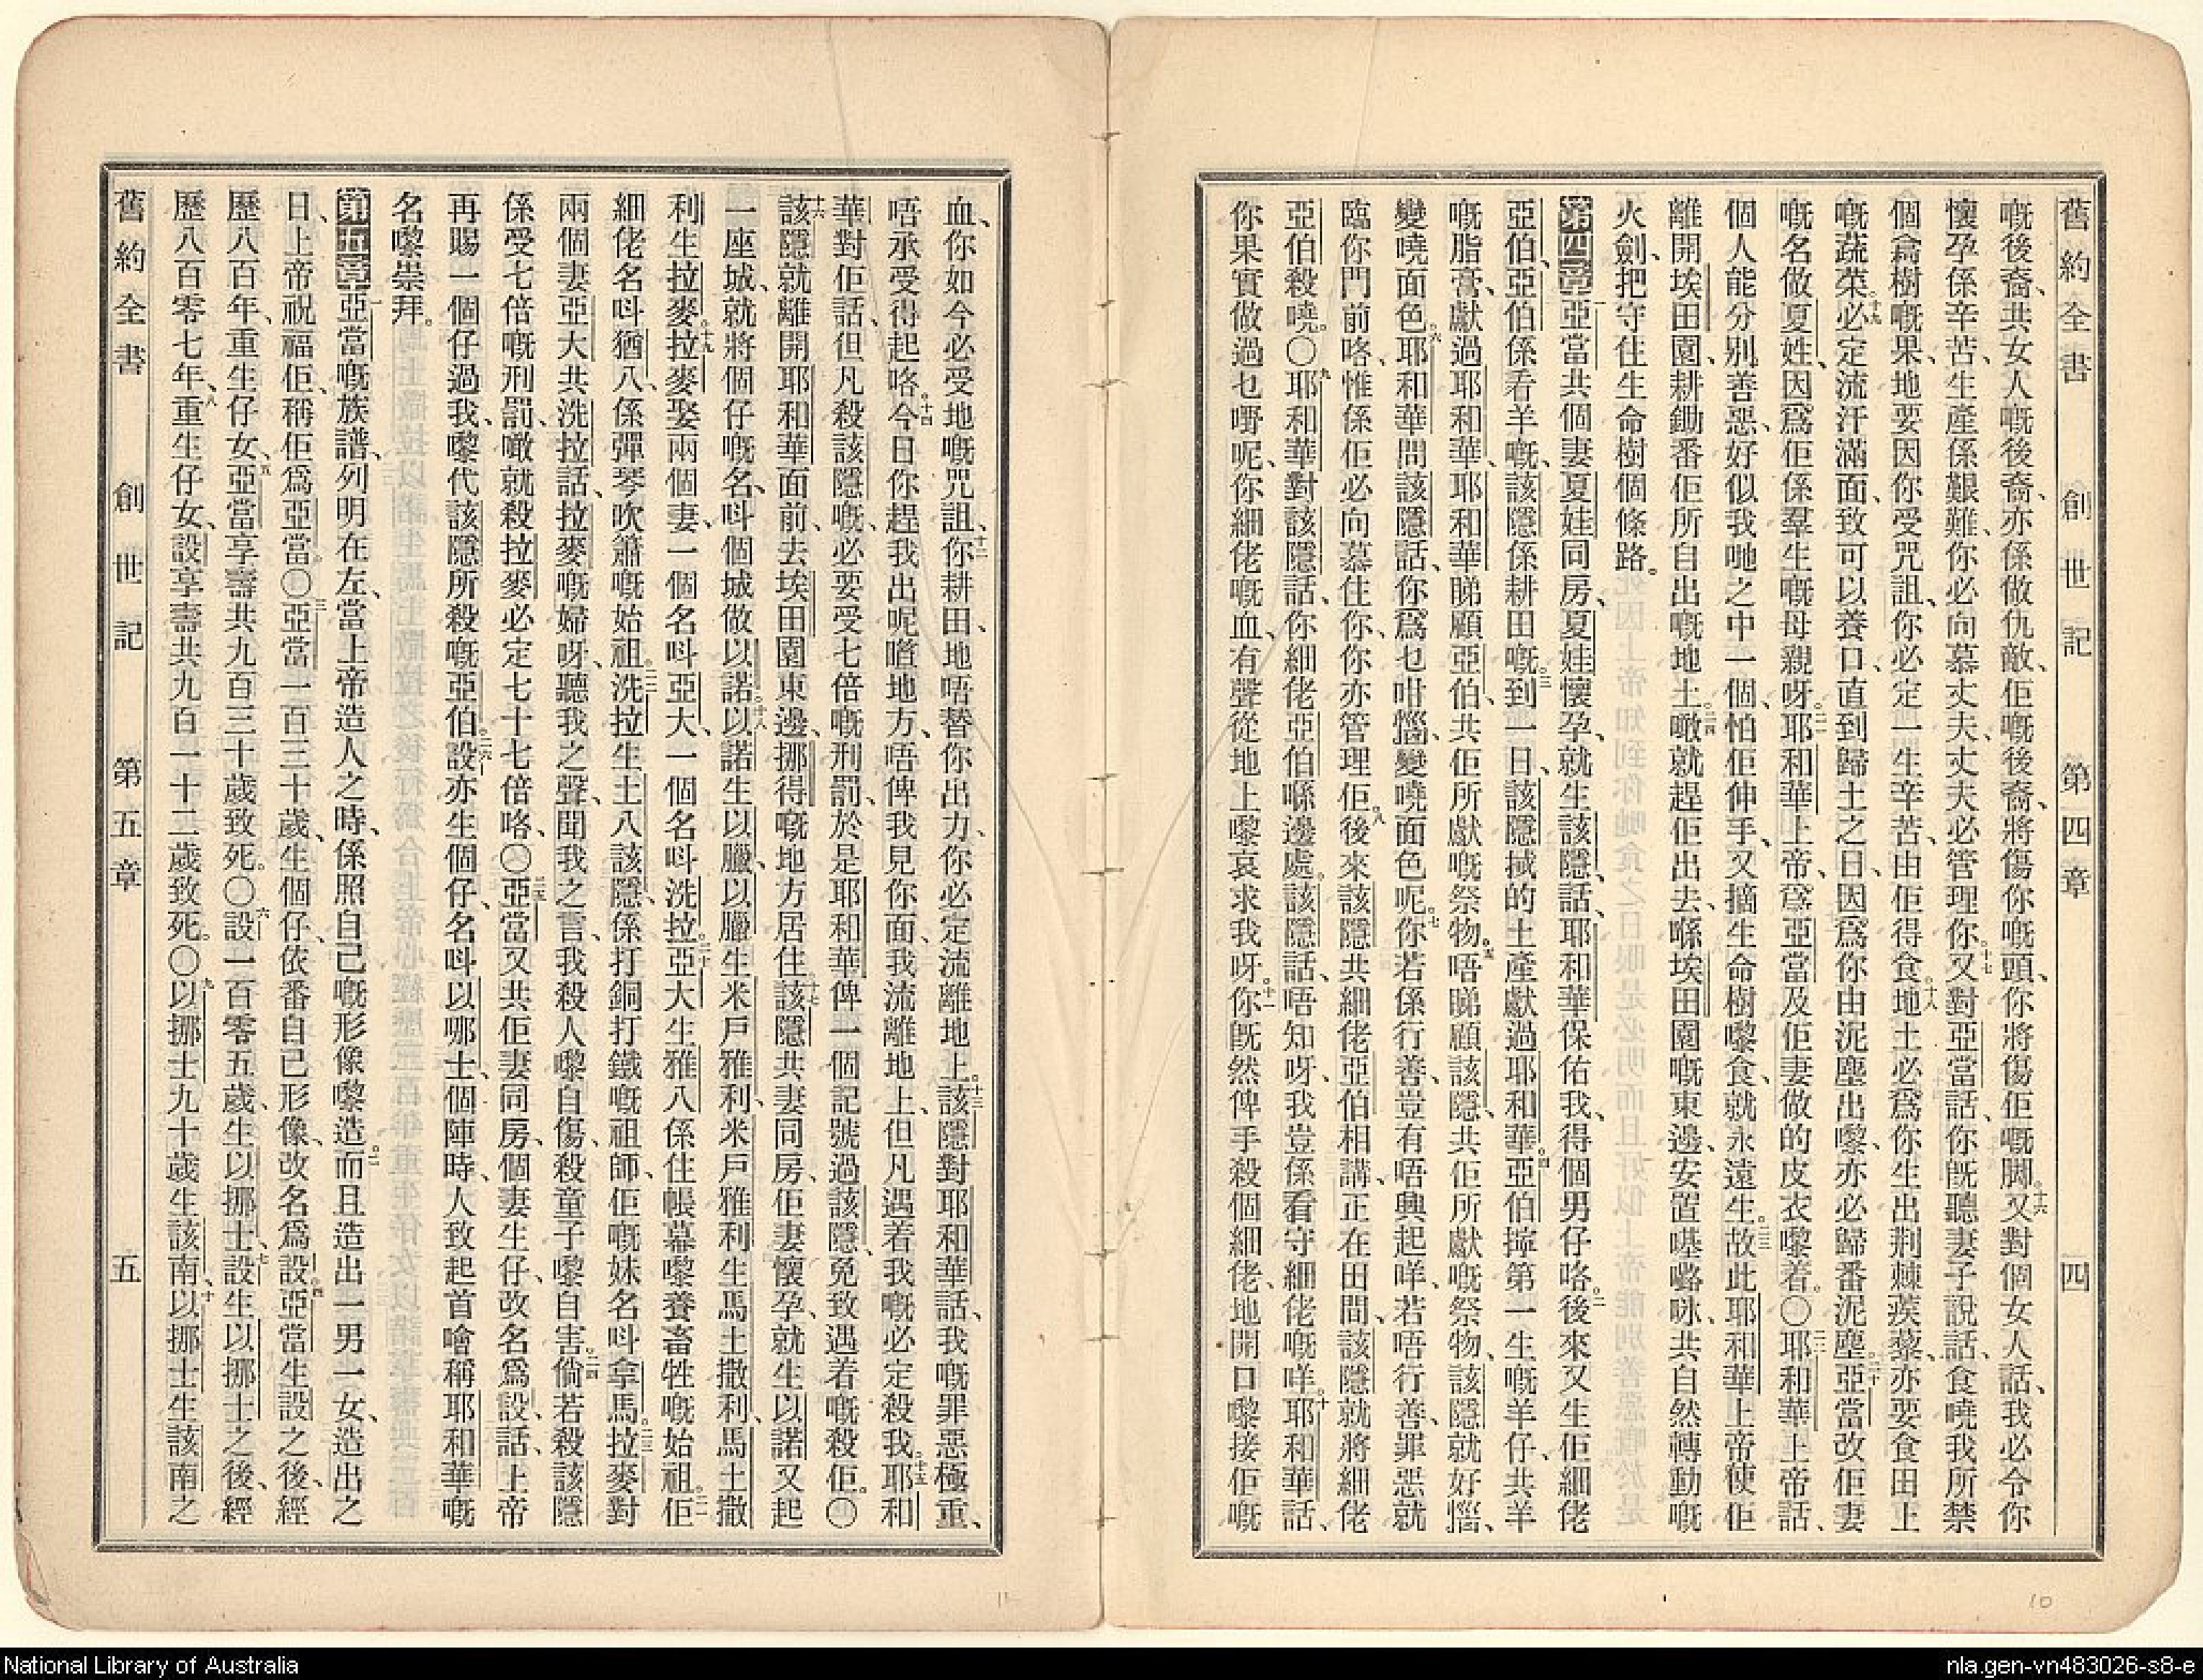 舊約全書 創世記 第四章 四
嘅後裔、共女人嘅後裔、亦係做仇敵、佢嘅後裔、將傷你嘅頭、你將傷佢嘅脚。十六又對個女人話、我必令你
懷孕係辛苦、生產係艱難、你必向慕丈夫、丈夫必管理你。十七又對亞當話、你既聽妻子說話、食嘵我所禁
個樹嘅果、地要因你受咒詛、你必定一生辛苦、由佢得食。十八地土必爲你生出荆棘蒺藜、亦要食田上
嘅蔬菜。十九必定流汗滿面、致可以養口、直到歸土之日、因爲你由泥塵出嚟、亦必歸番泥塵。二十亞當改佢妻
嘅名做夏娃、因爲佢係羣生嘅母親呀。二一耶和華上帝、爲亞當及佢妻做的皮衣嚟着。〇二二耶和華上帝話、
個人能分别善惡、好似我哋之中一個、怕佢伸手、又摘生命樹嚟食、就永遠生。二三故此耶和華上帝使佢
離開埃田園、耕鋤番佢所自出嘅地土。二四噉就趕佢出去、喺埃田園嘅東邊、安置𠼮𡀔咏、共自然轉動嘅
火劍、把守住生命樹個條路。
第四章 一亞當共個妻夏娃同房、夏娃懷孕、就生該隱、話、耶和華保佑我、得個男仔咯。二後來又生佢細佬
亞伯、亞伯係看羊嘅、該隱係耕田嘅。三到一日、該隱搣的土產獻過耶和華。四亞伯擰第一生嘅羊仔、共羊
嘅脂膏、獻過耶和華、耶和華睇顧亞伯、共佢所獻嘅祭物。五唔睇顧該隱、共佢所獻嘅祭物、該隱就好惱、
變嘵面色。六耶和華問該隱話、你爲乜咁惱、變嘵面色呢。七你若係行善、豈有唔興起咩、若唔行善、罪惡就
臨你門前咯、惟係佢必向慕住你、你亦管理佢。八後來該隱共細佬亞伯相講、正在田間、該隱就將細佬
亞伯殺嘵。〇九耶和華對該隱話、你細佬亞伯喺邊處。該隱話、唔知呀、我豈係看守細佬嘅咩。十耶和華話、
你果實做過乜嘢呢、你細佬嘅血、有聲從地上嚟哀求我呀。十一你既然俾手殺個細佬、地開口嚟接佢嘅
血、你如今必受地嘅咒詛、十二你耕田、地唔替你出力、你必定流離地上。十三該隱對耶和華話、我嘅罪惡極重、
唔承受得起咯。十四今日你趕我出呢笪地方、唔俾我見你面、我流離地上、但凡遇着我嘅必定殺我。十五耶和
華對佢話、但凡殺該隱嘅、必要受七倍嘅刑罰、於是耶和華俾一個記號過該隱、免致遇着嘅殺佢。〇
十六該隱就離開耶和華面前、去埃田園東邊、挪得嘅地方居住。十七該隱共妻同房、佢妻懷孕、就生以諾、又起
一座城、就將個仔嘅名、呌個城做以諾。十八以諾生以臘、以臘生米戶雅利、米戶雅利生馬土撒利、馬土撒
利生拉麥。十九拉麥娶兩個妻、一個名呌亞大、一個名呌洗拉。二十亞大生雅八、係住帳幕嚟養畜牲嘅始祖。二一佢
細佬名呌猶八、係彈琴吹簫嘅始祖。二二洗拉生土八該隱、係打銅打鐵嘅祖師、佢嘅妹名呌拿馬。二三拉麥對
兩個妻亞大共洗拉話、拉麥嘅婦呀、聽我之聲、聞我之言、我殺人嚟自傷、殺童子嚟自害。二四倘若殺該隱
係受七倍嘅刑罰、噉就殺拉麥必定七十七倍咯、〇二五亞當又共佢妻同房、個妻生仔、改名爲設、話、上帝
再賜一個仔過我、嚟代該隱所殺嘅亞伯。二六設亦生個仔、名呌以哪士、個陣時、人致起首噲稱耶和華嘅
名嚟崇拜。
第五章 一亞當嘅族譜、列明在左、當上帝造人之時、係照自己嘅形像嚟造。二而且造出一男一女、造出之
日、上帝祝福佢、稱佢爲亞當。〇三亞當一百三十歲、生個仔、依番自己形像、改名爲設。四亞當生設之後、經
歷八百年、重生仔女、五亞當享壽共九百三十歲致死。〇六設一百零五歲、生以挪士、七設生以挪士之後、經
歷八百零七年、八重生仔女、設享壽共九百一十二歲致死。〇九以挪士九十歲生該南、十以挪士生該南之
舊約全書 創世記 第五章 五
10
National Library of Australia
nla.gen-vn483026-s8-e